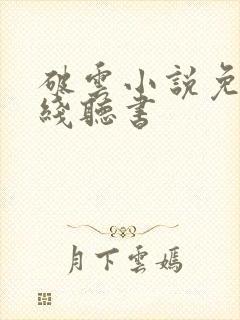 破雲小說免
綫聽書
月下雲嫣